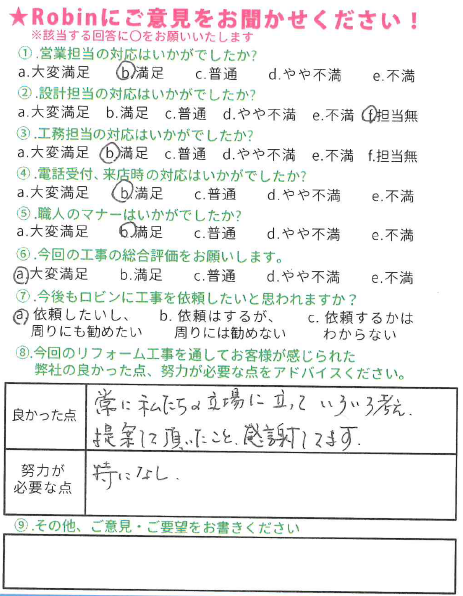 ★Robinにご意見をお聞かせください！
※該当する回答に〇をお願いいたします
①.営業担当の対応はいかがでしたか?
a.大変満足 b.満足 c.普通 d.やや不満 e.不満
②.設計担当の対応はいかがでしたか?
a.大変満足 b.満足 c.普通 d.やや不満 e.不満 f.担当無
③.工務担当の対応はいかがでしたか?
a.大変満足 b.満足 c.普通 d.やや不満 e.不満 f.担当無
④.電話受付、来店時の対応はいかがでしたか?
a.大変満足 b.満足 c.普通 d.やや不満 e.不満
⑤.職人のマナーはいかがでしたか?
a.大変満足 b.満足 c.普通 d.やや不満 e.不満
⑥.今回の工事の総合評価をお願いします。
a.大変満足 b.満足 c.普通 d.やや不満 e.不満
⑦.今後もロビンに工事を依頼したいと思われますか？
a.依頼したいし、 b.依頼はするが、 c.依頼するかは
周りにも勧めたい 周りには勧めない わからない
⑧.今回のリフォーム工事を通してお客様が感じられた
弊社の良かった点、努力が必要な点をアドバイスください。
良かった点
常に私たちの立場に立って いろいろ考え.
提案して頂いたこと、感謝してます.
努力が
必要な点
特になし.
⑨.その他、ご意見・ご要望をお書きください